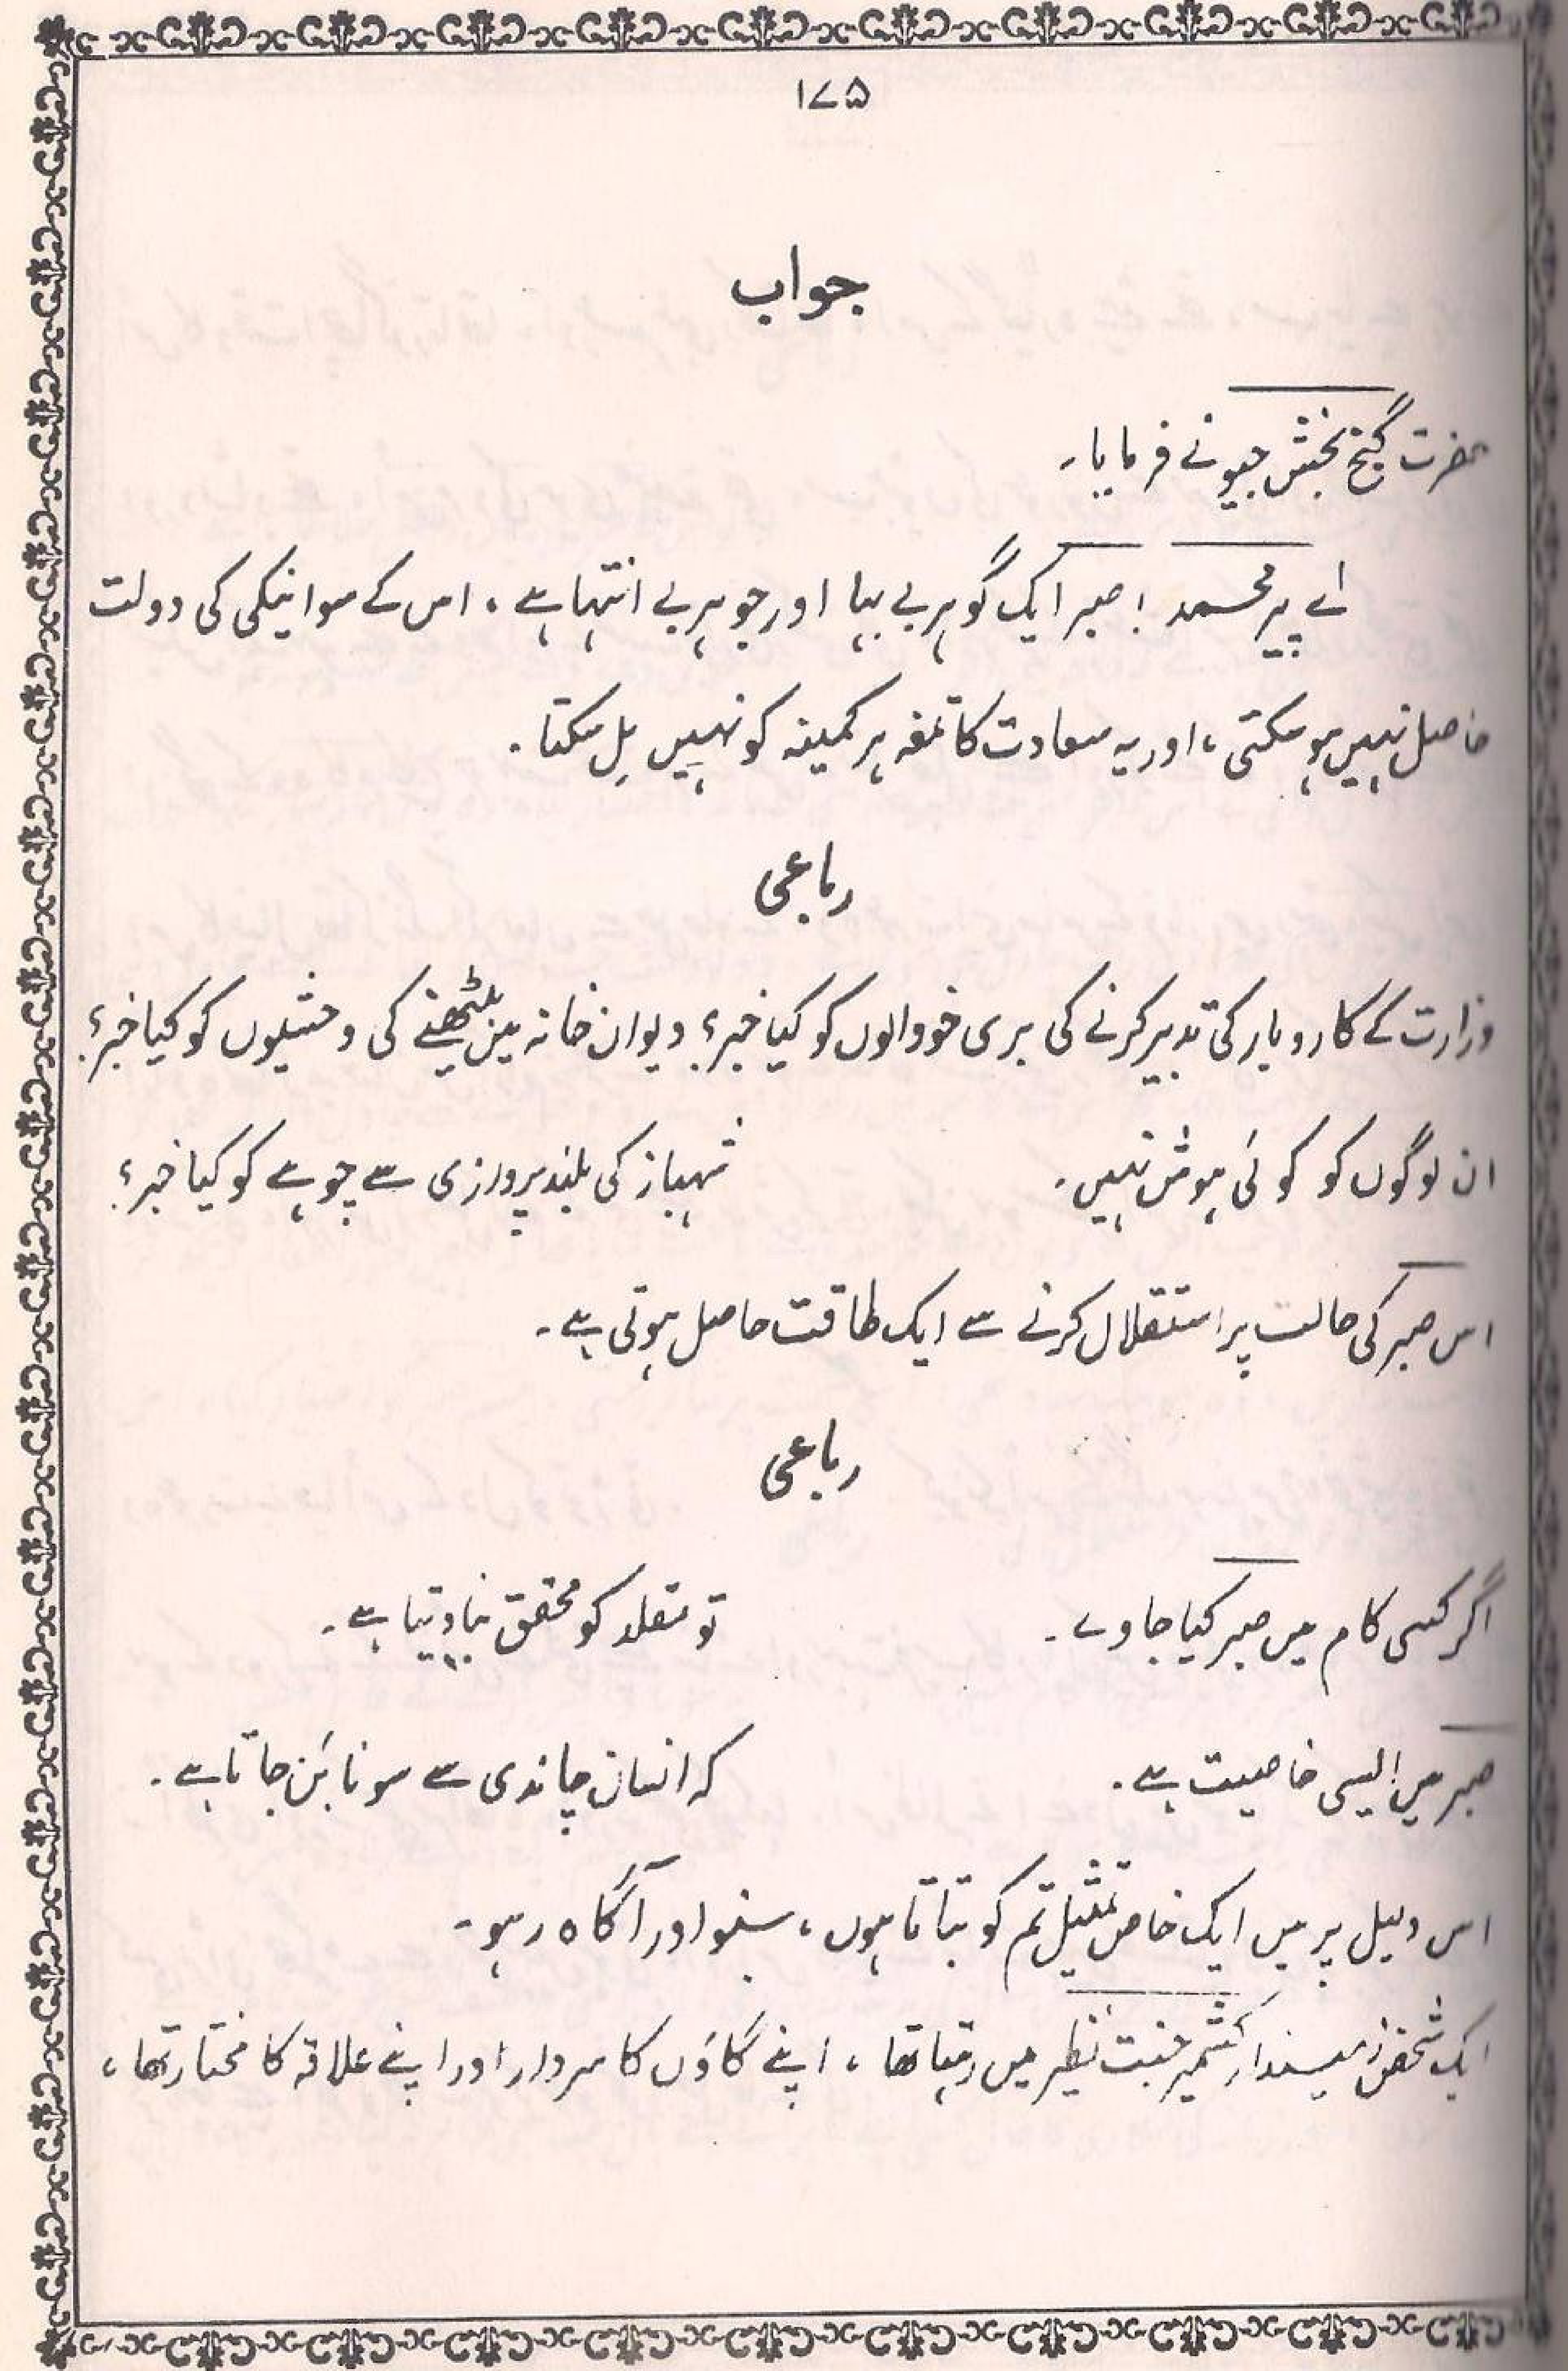 ۱۷۵
جواب
حضرت گنج بخش جیو نے فرمایا۔
اے پیر محمد ! صبر ایک گوہر بے بہا اور جوہر بے انتہا ہے ، اس کے سوا نیکی کی دولت
حاصل نہیں ہو سکتی ، اور یہ سعادت کا تمغہ ہر کمینہ کو نہیں مِل سکتا ۔
رباعی
وزارت کے کاروبار کی تدبیر کرنے کی بری خو والوں کو کیا خبر؟ دیوان خانہ میں بیٹھنے کی وحشیوں کو کیا خبر؟
ان لوگوں کو کوئی ہوش نہیں ۔ شہباز کی بلند پروازی سے چوہے کو کیا خبر؟
اس صبر کی حالت پر استقلال کرنے سے ایک طاقت حاصل ہوتی ہے ۔
رباعی
اگر کسی کام میں صبر کیا جاوے ۔ تو مقلد کو محقق بنا دیتا ہے ۔
صبر میں ایسی خاصیت ہے ۔ کہ انسان چاندی سے سونا بَن جاتا ہے ۔
اس دلیل پر میں ایک خاص تمثیل تم کو بتاتا ہوں ، سنو اور آگاہ رہو ۔
ایک شخص زمیندار کشمیر جنت نظیر میں رہتا تھا ، اپنے گاؤں کا سردار اور اپنے علاقہ کا مختار تھا ،